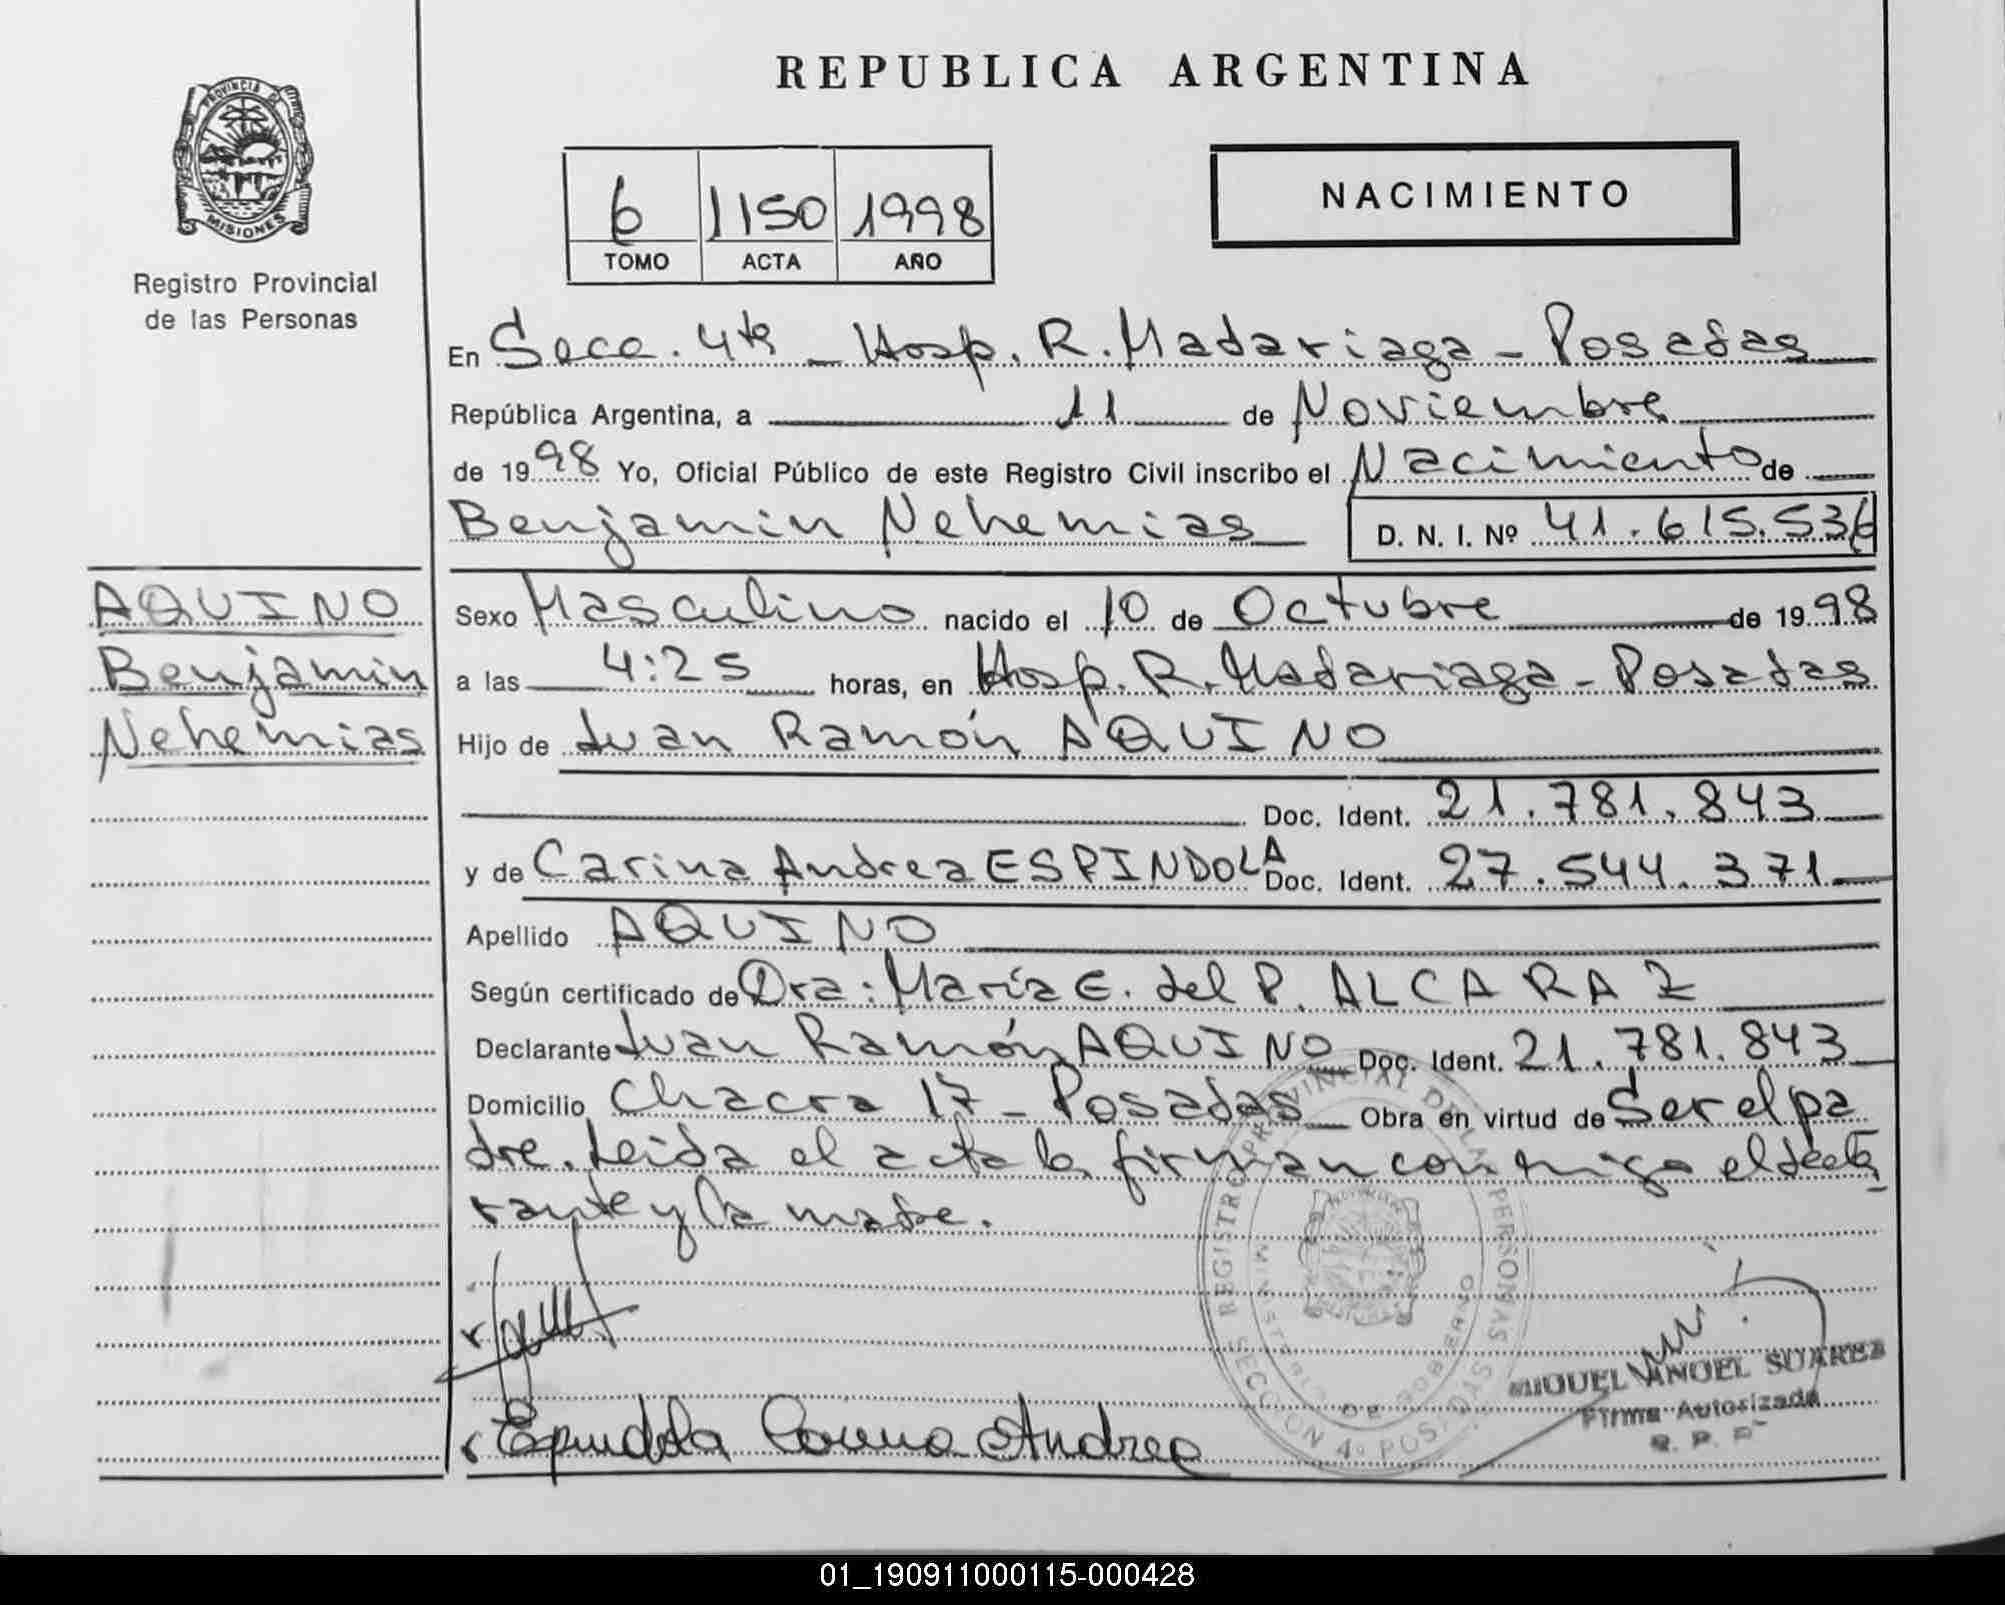 PROVINCIA DE
MISIONES
Registro Provincial
de las Personas
REPUBLICA ARGENTINA
6 1150 1998
TOMO ACTA AÑO
NACIMIENTO
En Secc. 4ta - Hosp. R. Madariaga - Posadas
República Argentina, a 11 de Noviembre
de 1998 Yo, Oficial Público de este Registro Civil inscribo el Nacimiento de
Benjamin Nehemias D. N. I. Nº 41.615.536
AQUINO
Benjamin
Nehemias
Sexo Masculino nacido el 10 de Octubre de 1998
a las 4:25 horas, en Hosp. R. Madariaga - Posadas
Hijo de Juan Ramón AQUINO
Doc. Ident. 21.781.843
y de Carina Andrea ESPINDOLA Doc. Ident. 27.544.371
Apellido AQUINO
Según certificado de Dra: María E. del P. ALCARAZ
Declarante Juan Ramón AQUINO Doc. Ident. 21.781.843
Domicilio Chacra 17 - Posadas Obra en virtud de Ser el pa
dre. Leida el acta la firman conmigo el decla
rante y la madre.
REGISTRO PROVINCIAL DE LAS PERSONAS
MINISTERIO DE GOBIERNO
SECCION 4º POSADAS
MIGUEL ANGEL SUAREZ
Firma Autorizada
R. P. P.
Espindola Carina Andrea
01_190911000115-000428